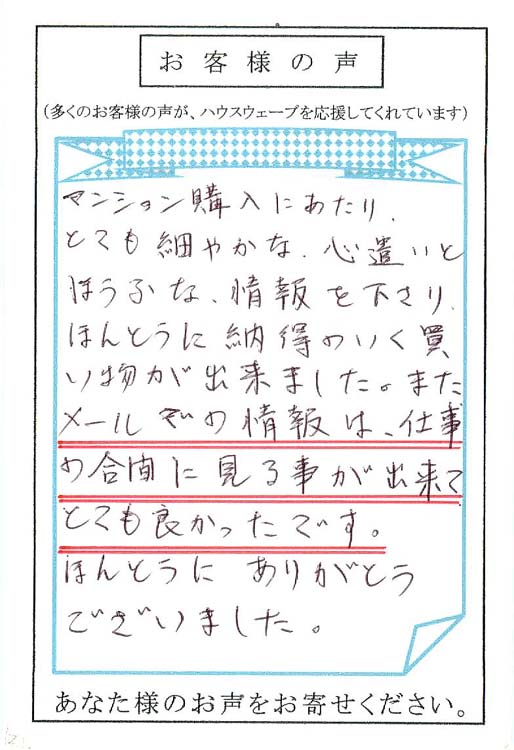 お客様の声
（多くのお客様の声が、ハウスウェーブを応援してくれています）
マンション購入にあたり、
とても細やかな、心遣いと
ほうふな、情報を下さり、
ほんとうに納得のいく買
い物が出来ました。また
メールでの情報は、仕事
の合間に見る事が出来て
とても良かったです。
ほんとうに ありがとう
ございました。
あなた様のお声をお寄せください。